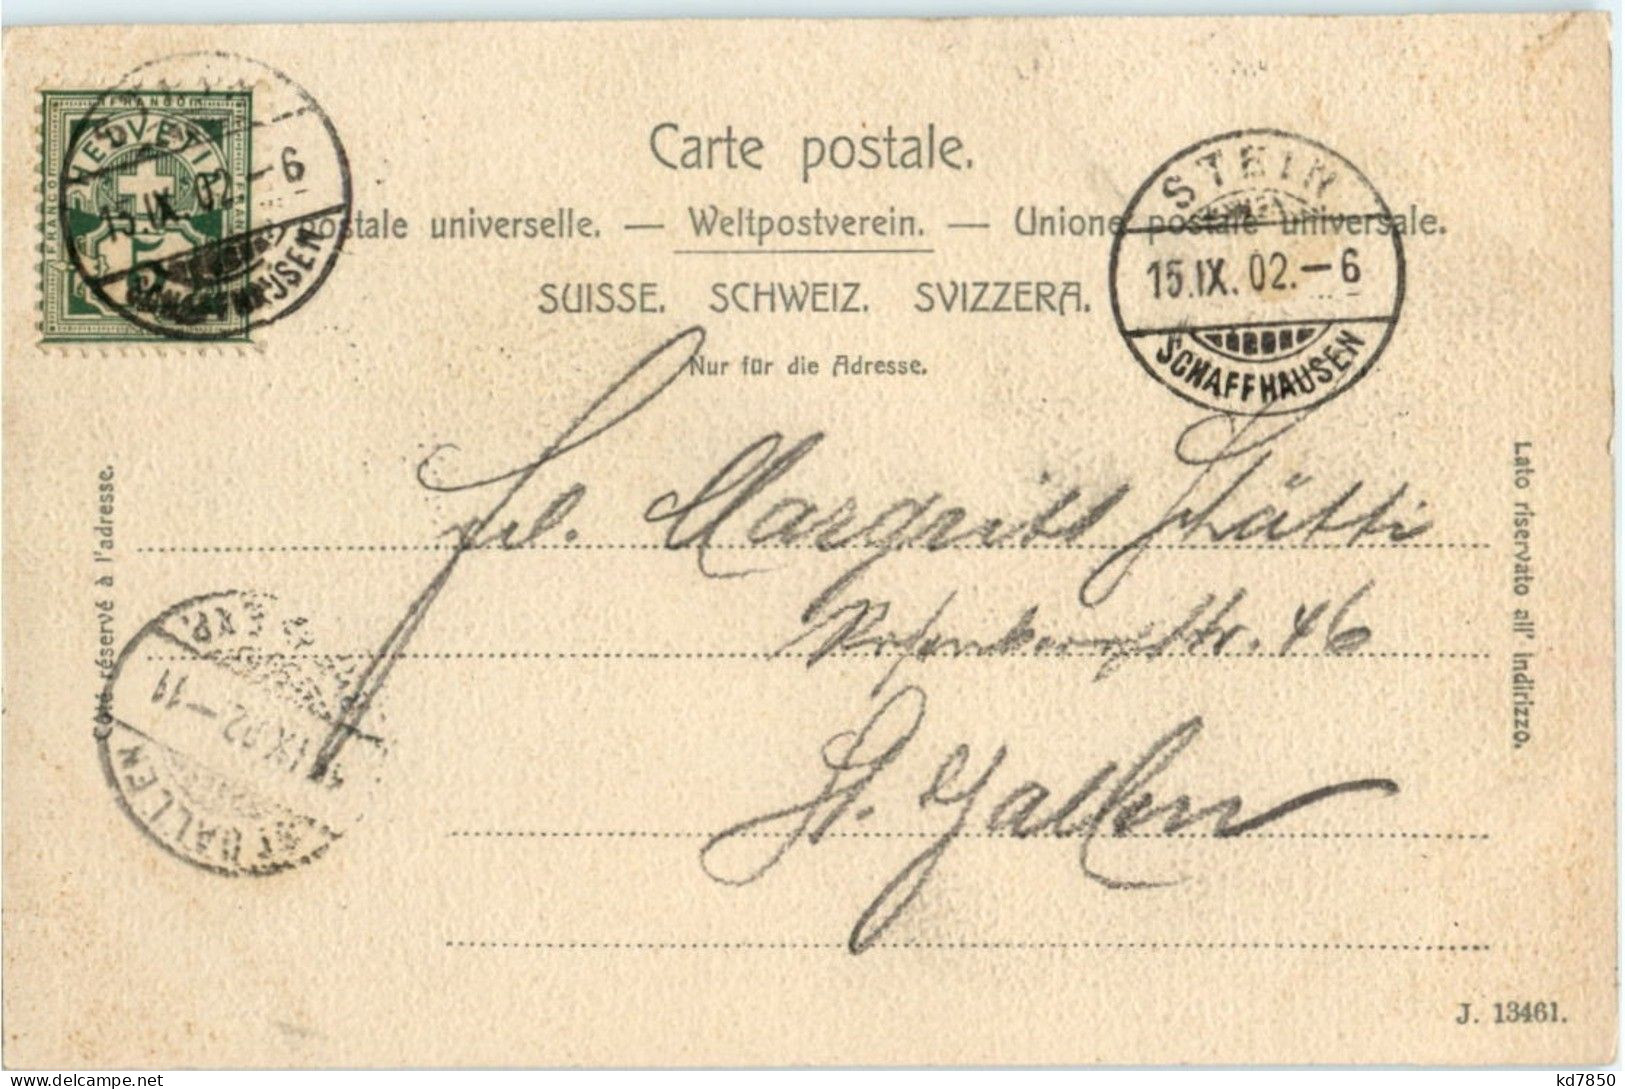 FRANCO
HELVETIA
FRANCO
15.IX.02.-6
SCHAFFHAUSEN
Carte postale.
postale universelle. — Weltpostverein. — Unione postale universale.
SUISSE. SCHWEIZ. SVIZZERA.
Nur für die Adresse.
STEIN
15.IX.02.-6
SCHAFFHAUSEN
Côté réservé à l'adresse.
Lato riservato all' indirizzo.
Frl. Margritt Schätti
Rosenbergstr. 46
St. Gallen
IX.02.-11
GALLEN
J. 13461.
kd7850